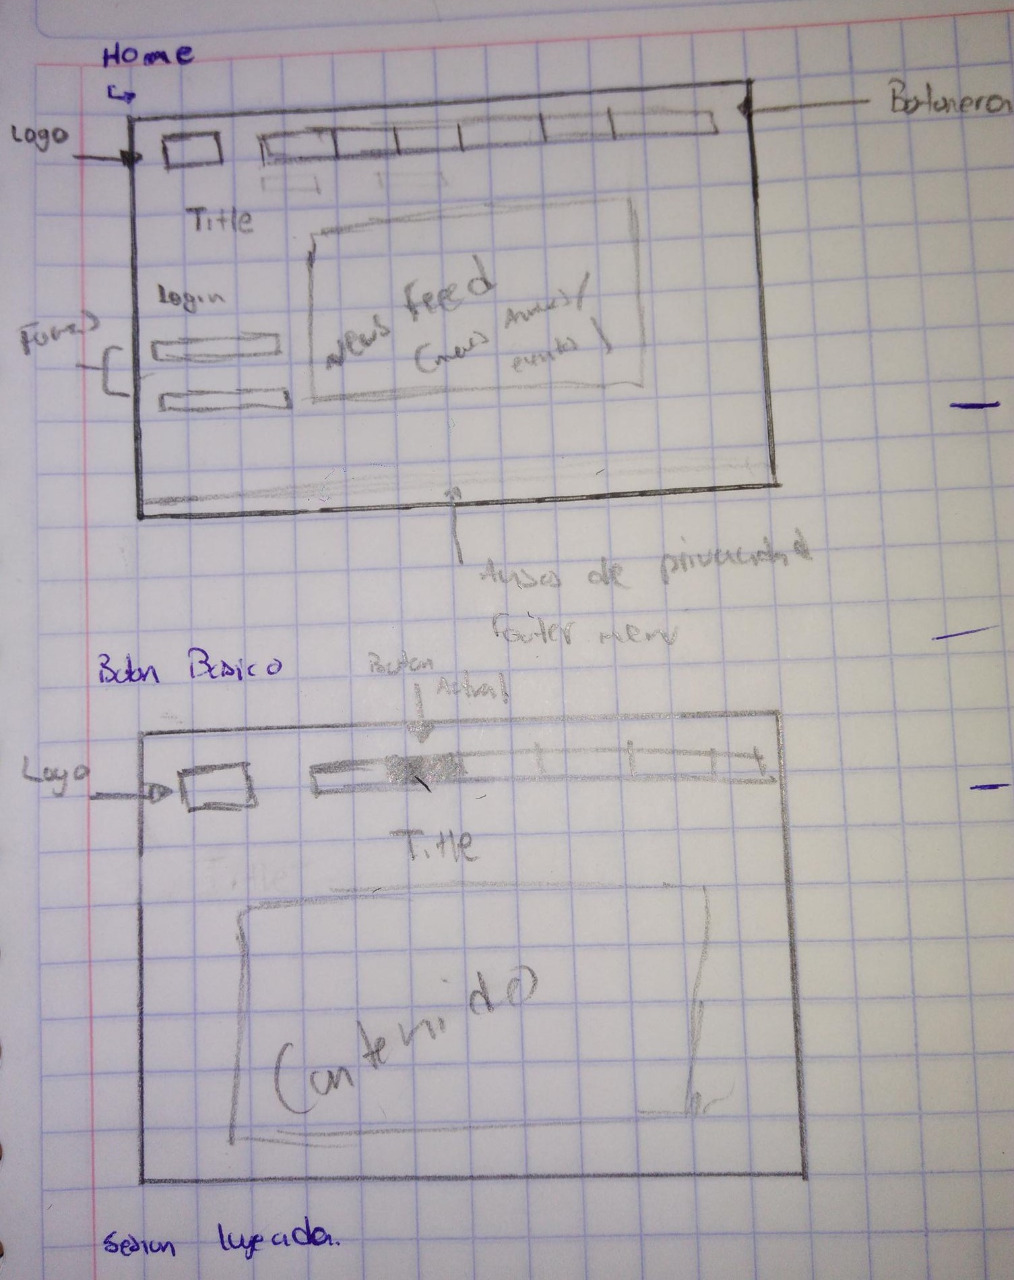 Home
Logo
Botonera
Title
Login
News Feed
(nuevos
eventos)
Avisos de privacidad
Footer menu
Boton Basico
Boton
Actual
Logo
Title
Title
Contenido
Sesion lugeada.